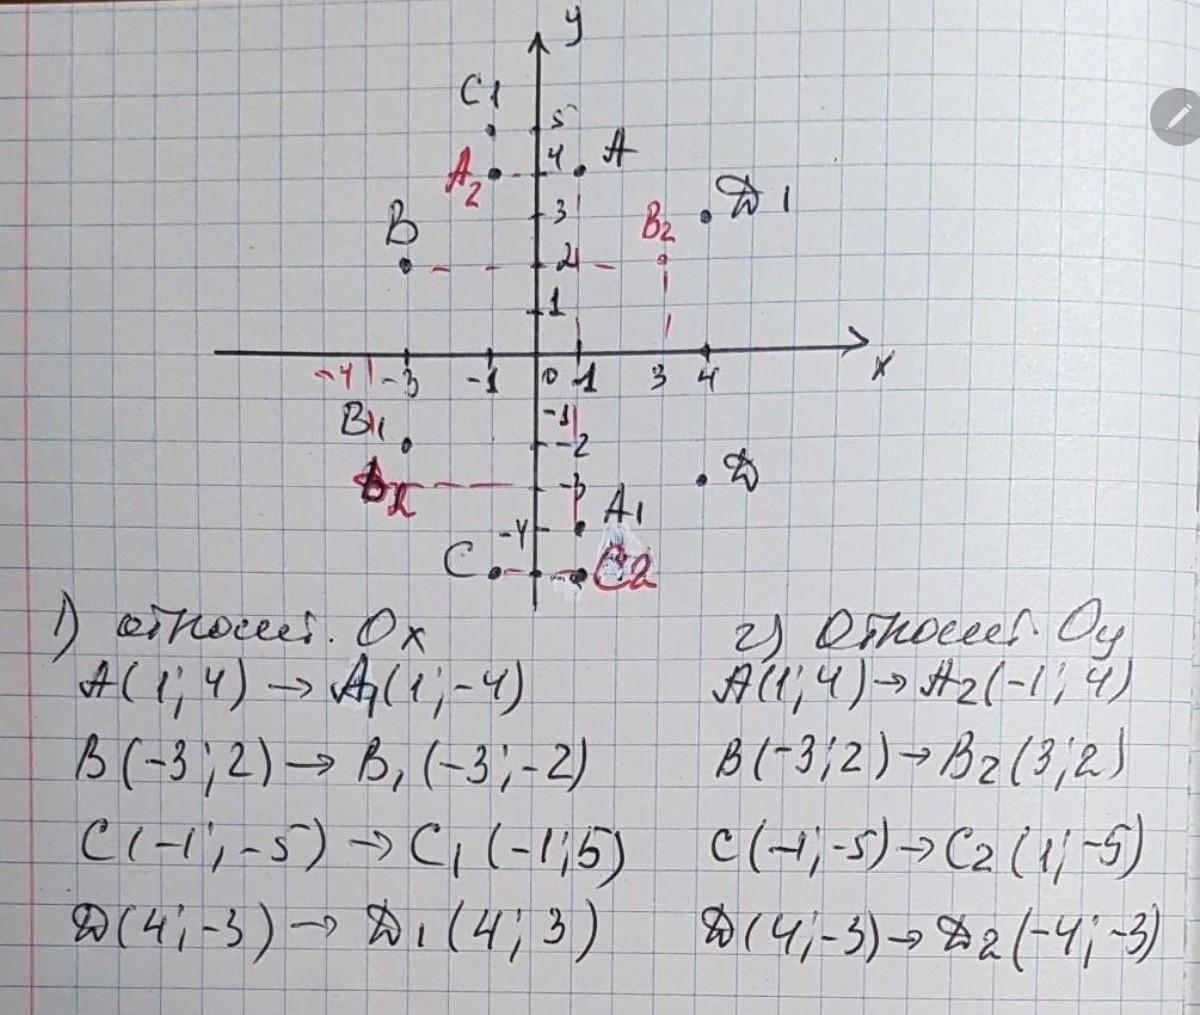 y
C1
5
4 A
A2
3 Д1
B B2
2
1
-4 -3 -1 0 1 3 4 x
-1
B1 -2
-3 Д
A1
-4
C C2
1) относит. Ox
A(1; 4) → A1(1; -4)
B(-3; 2) → B1(-3; -2)
C(-1; -5) → C1(-1; 5)
Д(4; -3) → Д1(4; 3)
2) Относит. Oy
A(1; 4) → A2(-1; 4)
B(-3; 2) → B2(3; 2)
C(-1; -5) → C2(1; -5)
Д(4; -3) → Д2(-4; -3)